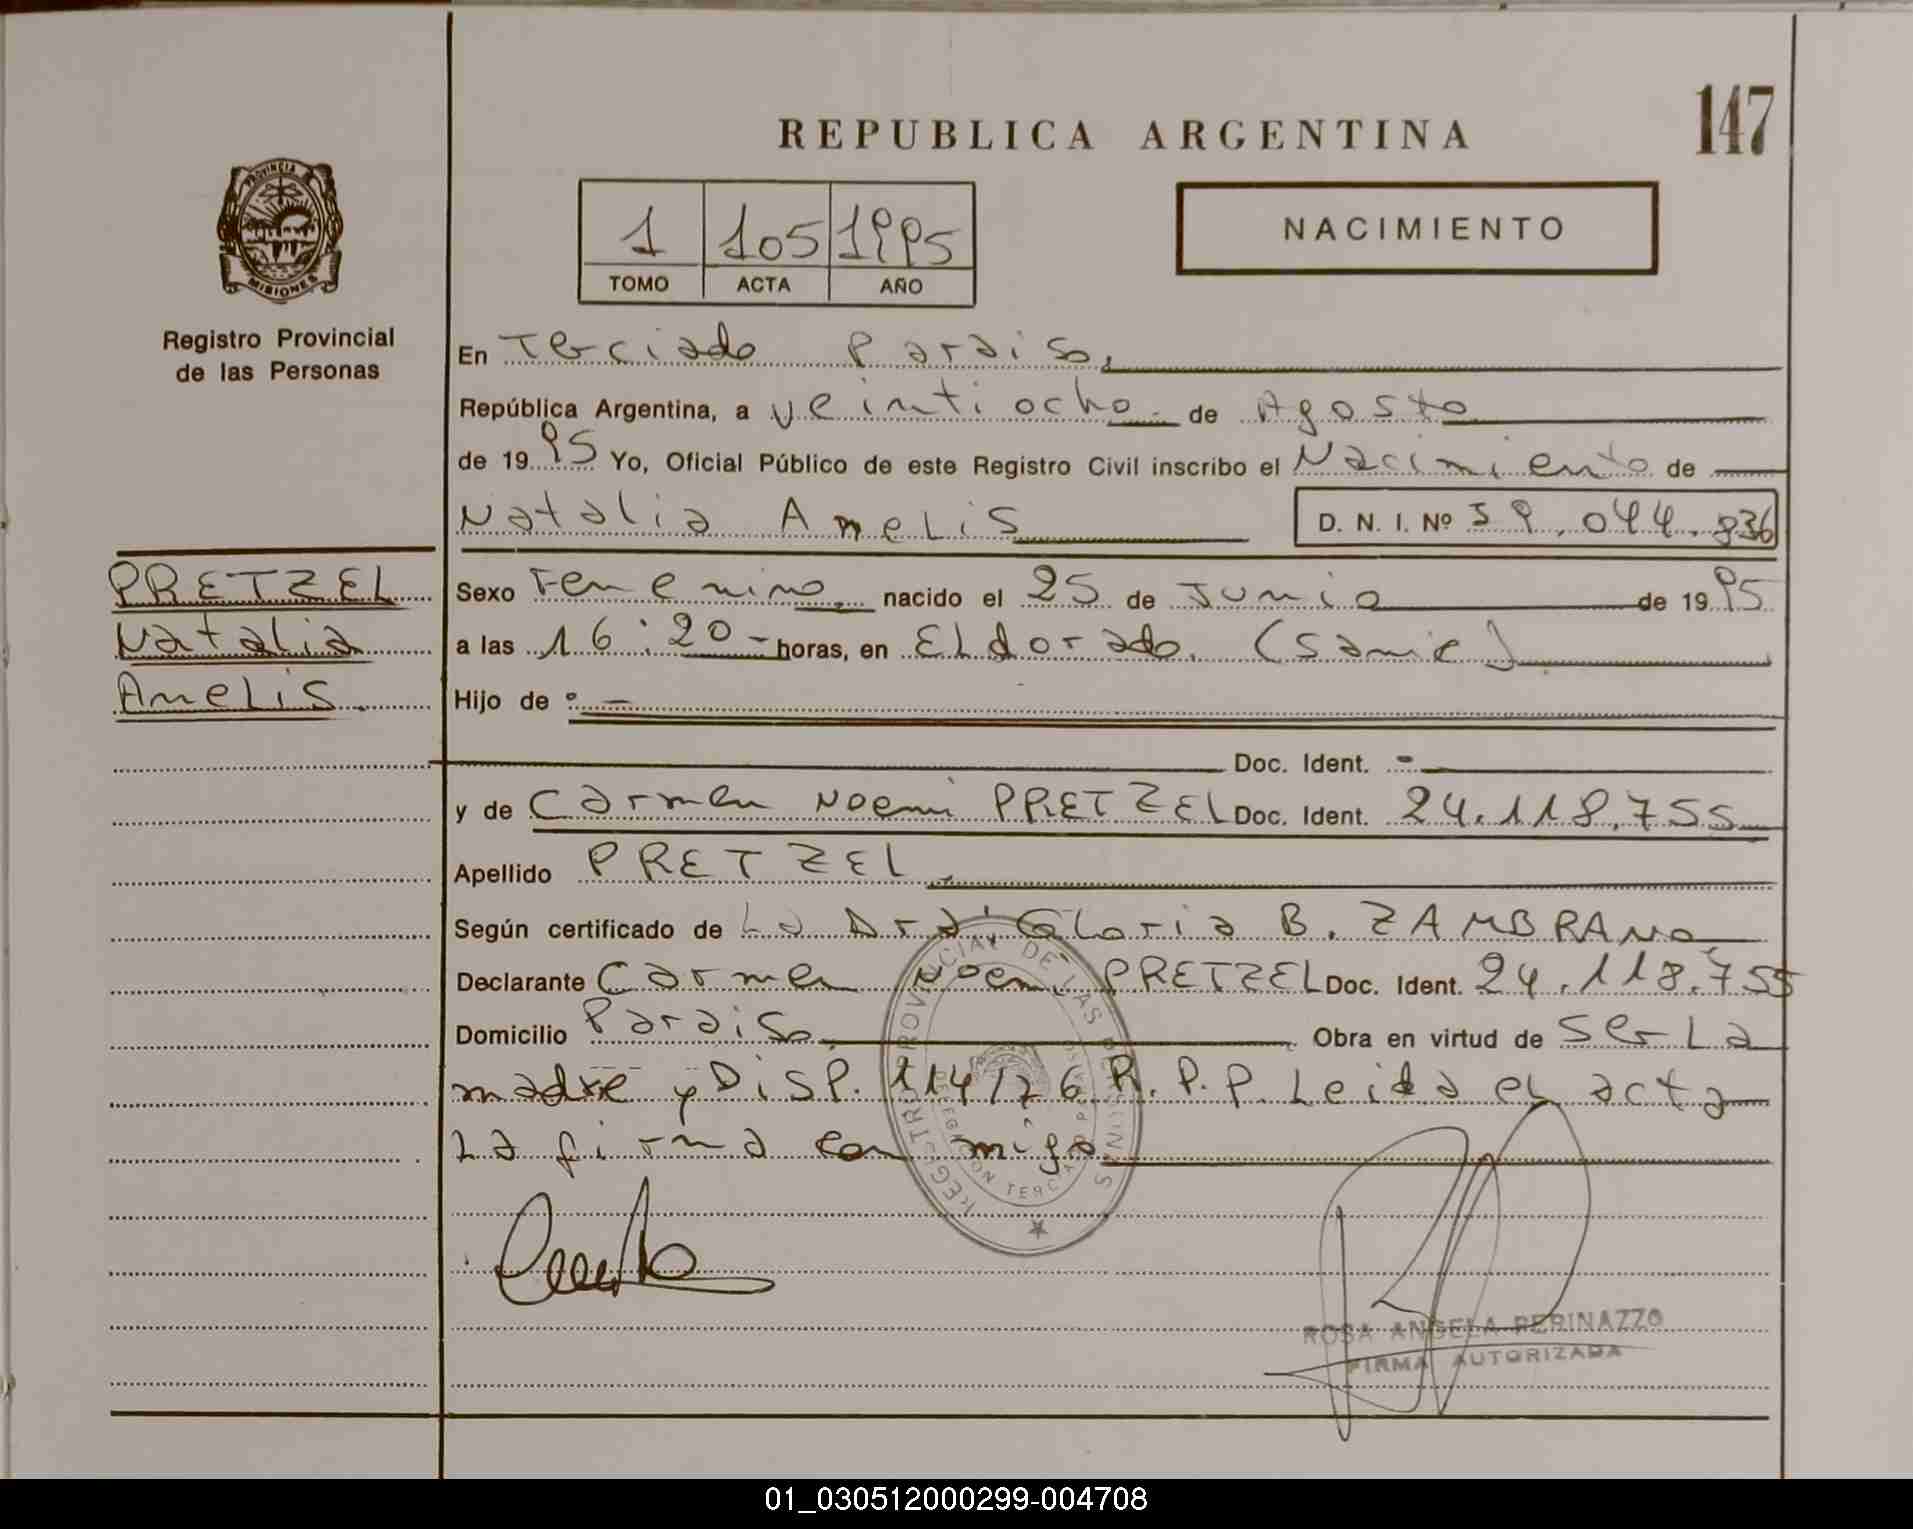 147
REPUBLICA ARGENTINA
PROVINCIA
MISIONES
Registro Provincial
de las Personas
1 105 1995
TOMO ACTA AÑO
NACIMIENTO
En Terciado Paraiso,
República Argentina, a veintiocho.- de Agosto
de 1995 Yo, Oficial Público de este Registro Civil inscribo el Nacimiento de
Natalia Anelis
D. N. I. Nº 39.044.836
PRETZEL
Natalia
Anelis.
Sexo Femenino, nacido el 25 de Junio de 1995
a las 16:20- horas, en Eldorado. (Samic)
Hijo de :-
Doc. Ident. -
y de Carmen Noemi PRETZEL Doc. Ident. 24.118.755
Apellido PRETZEL.
Según certificado de La Dra' Gloria B. ZAMBRANO
Declarante Carmen Noemi PRETZEL Doc. Ident. 24.118.755
Domicilio Paraiso. Obra en virtud de ser La
madre y DISP. 114/76 R.P.P. Leida el acta
La firma con migo
REGISTRO PROVINCIAL DE LAS PERSONAS
DELEGACION TERCIADO PARAISO
ROSA ANGELA PERINAZZO
FIRMA AUTORIZADA
01_030512000299-004708